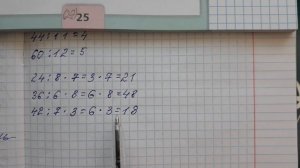 25
44:11=4
60:12=5
24:8·7=3·7=21
36:6·8=6·8=48
42:7·3=6·3=18